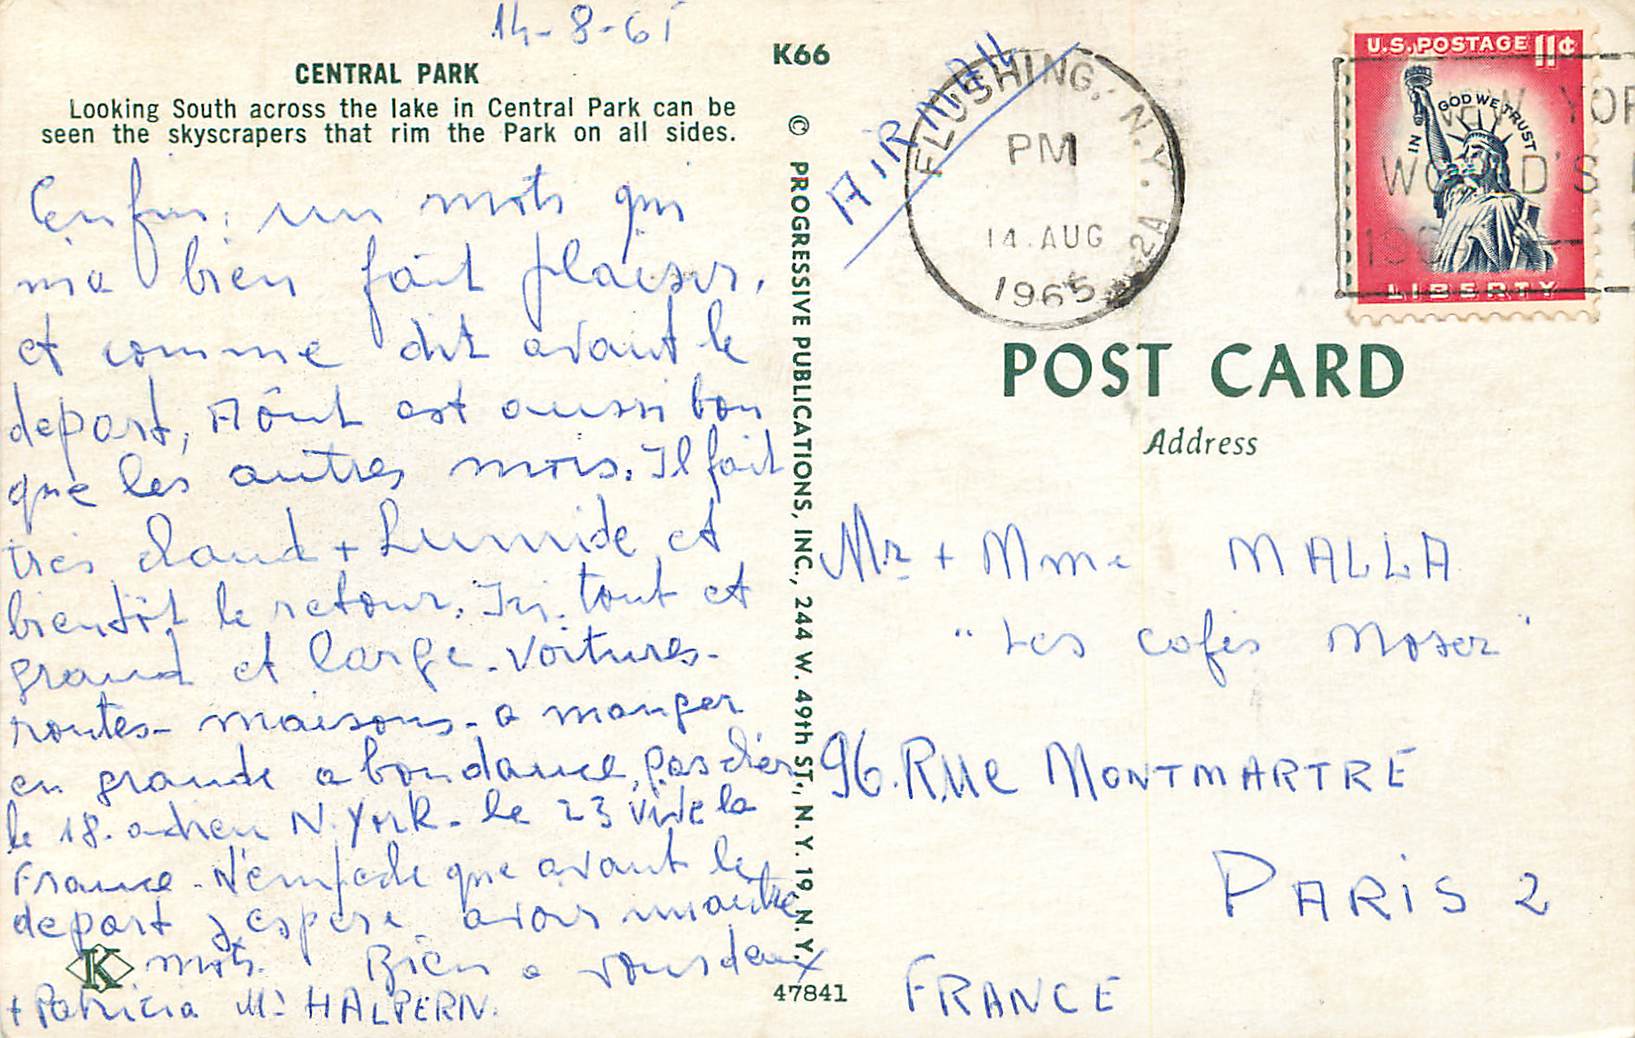 14-8-65
CENTRAL PARK
Looking South across the lake in Central Park can be
seen the skyscrapers that rim the Park on all sides.
Enfin, un mots qui
ma bien fait plaisir,
et comme dit avant le
depart, Aôut est aussi bon
que les autres mois. Il fait
tres chaud + humide et
bientôt le retour. Ici, tout et
grand et large - voitures -
routes - maisons - a manger
en grande abondance, pas cher
le 18. adieu N. York - le 23 vive la
France - N'empeche que avant le
depart j'espere avoir un autre
mots. Bien a vous deux
+ Patricia Mr HALPERN.
K
K66
© PROGRESSIVE PUBLICATIONS, INC., 244 W. 49th ST., N. Y. 19, N. Y.
47841
AIR MAIL
FLUSHING, N.Y.
PM
14 AUG
1965
2A
U.S. POSTAGE 11¢
IN GOD WE TRUST
LIBERTY
NEW YOR
WORLD'S
196
POST CARD
Address
Mr + Mme MALLA
"Les cafés Moser"
96. Rue MONTMARTRE
PARIS 2
FRANCE